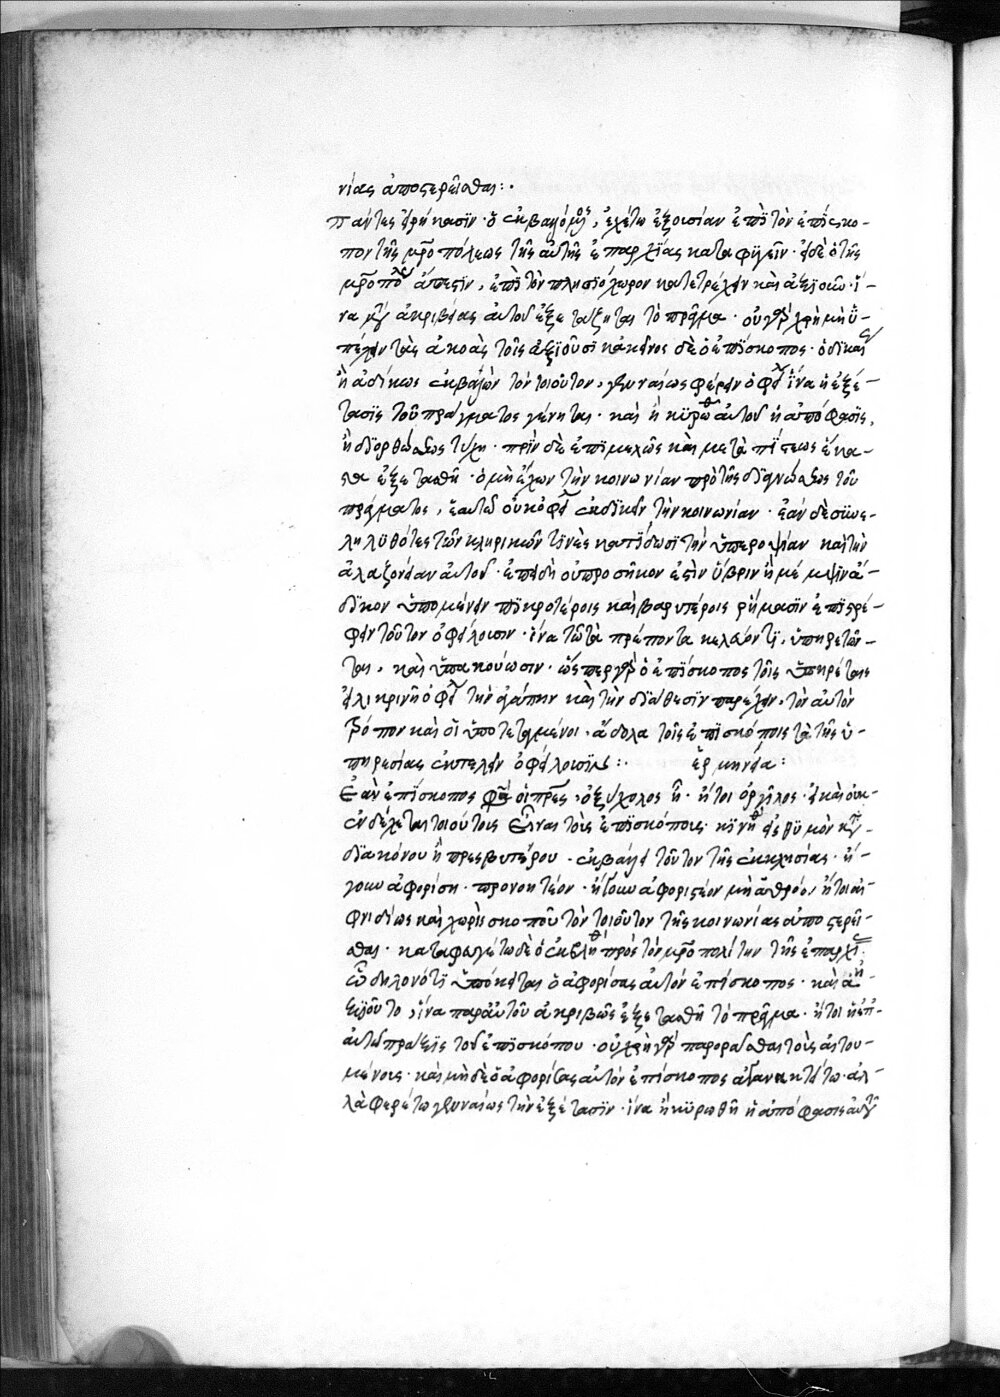 νίας ἀποστερεῖσθαι:·
Πάντες εἰρήκασϊν· ὁ ἐκβαλλόμενος, ἐχέτω ἐξουσίαν ἐπῒ τὸν ἐπίσκο-
πον τῆς μητροπόλεως τῆς αὐτῆς ἐπαρχΐας καταφϋγεῖν· εἰ δὲ ὁ τῆς
μητροπόλεως ἄπεστϊν, ἐπῒ τὸν πλησϊόχωρον κατατρέχειν καὶ ἀξϊοῦν· ἵ-
να μετὰ ἀκριβείας αὐτοῦ ἐξετάζηται τὸ πρᾶγμα· οὐ γὰρ χρὴ μὴ ὑ-
πέχειν τὰς ἀκοὰς τοῖς ἀξϊοῦσϊ κἀκεῖνος δὲ ὁ ἐπΐσκοπος· ὁ δικαίως
ἢ ἀδίκως ἐκβαλὼν τὸν τοιοῦτον, γενναίως φέρειν ὀφείλει ἵνα ἡ ἐξέ-
τασϊς τοῦ πράγματος γένηται· καὶ ἢ κϋρωθῇ αὐτοῦ ἡ ἀπόφασϊς,
ἢ δϊορθώσεως τύχῃ· πρῒν δὲ ἐπϊμελῶς καὶ μετὰ πΐστεως ἕκα-
στα ἐξετασθῇ· ὁ μὴ ἔχων τὴν κοινωνίαν πρὸ τῆς δϊαγνώσεως τοῦ
πράγματος, ἑαυτῷ οὐκ ὀφείλει ἐκδϊκεῖν τὴν κοινωνίαν· ἐὰν δὲ σϋνε-
ληλϋθότες τῶν κληρικῶν τϊνὲς κατΐδωσϊ τὴν ὑπεροψίαν καὶ τὴν
ἀλαζονείαν αὐτοῦ· ἐπειδὴ οὐ προσῆκον ἐστὶν ὕβριν ἢ μέμψϊν ἄ-
δϊκον ὑπομένειν πϊκροτέροις καὶ βαρυτέροις ρήμασϊν ἐπϊστρέ-
φειν τοῦτον ὀφείλουσιν· ἵνα τῶ τὰ πρέποντα κελεύοντϊ, ὑπηρετῶν-
ται, καὶ ὑπακούωσιν· ὥσπερ γὰρ ὁ ἐπΐσκοπος τοῖς ὑπηρέταις
εἰλικρινῆ ὀφείλει τὴν ἀγάπην καὶ τὴν δϊάθεσϊν παρέχειν, τὸν αὐτὸν
τρόπον καὶ οἱ ὑποτεταγμένοι, ἄδολα τοῖς ἐπϊσκόποις τὰ τῆς ὑ-
πηρεσίας ἐκτελεῖν ὀφείλουσϊν:· ἑρμηνεία:
Ἐὰν ἐπίσκοπος φασὶν οἱ πατέρες, ὀξύχολος ἢ· ἤτοι ὀργΐλος· εἰ καὶ οὐκ
ἐνδέχεται τοιούτοις εἶναι τοὺς ἐπϊσκόποις· κϊνηθεὶς εἰς θϋμὸν κατὰ
δϊακόνου ἢ πρεσβυτέρου· ἐκβάλῃ τοῦτον τῆς ἐκκλησίας· ἤ-
γουν ἀφορίσῃ· προνοητέον· ἤγουν ἀφοριστέον μὴ ἀθρόον ἤτοι αἰ-
φνιδίως καὶ χωρὶς σκοποῦ τὸν τοιοῦτον τῆς κοινωνίας ἀποστερεῖ-
σθαι· καταφυγέτω δὲ ὁ ἐκβληθεὶς πρὸς τὸν μητροπολίτην τῆς ἐπαρχΐας
ᾧ δηλονότϊ ὑπόκειται ὁ ἀφορίσας αὐτὸν ἐπίσκοπος· καὶ ἀ-
ξϊούτο, ἵνα παρ' αὐτοῦ ἀκριβῶς ἐξετασθῇ τὸ πρᾶγμα· ἤτοι ἡ ἐπ'
αὐτῶ πρᾶξϊς τοῦ ἐπϊσκόπου· οὐ χρὴ γὰρ παρορᾶσθαι τοὺς αἰτου-
μένους· καὶ μὴ δὲ ὁ ἀφορίσας αὐτὸν ἐπίσκοπος ἀγανακτείτω· ἀλ-
λὰ φερέτω γενναίως τὴν ἐξέτασϊν· ἵνα ἢ κϋρωθῇ ἡ ἀπόφασις αὐτοῦ